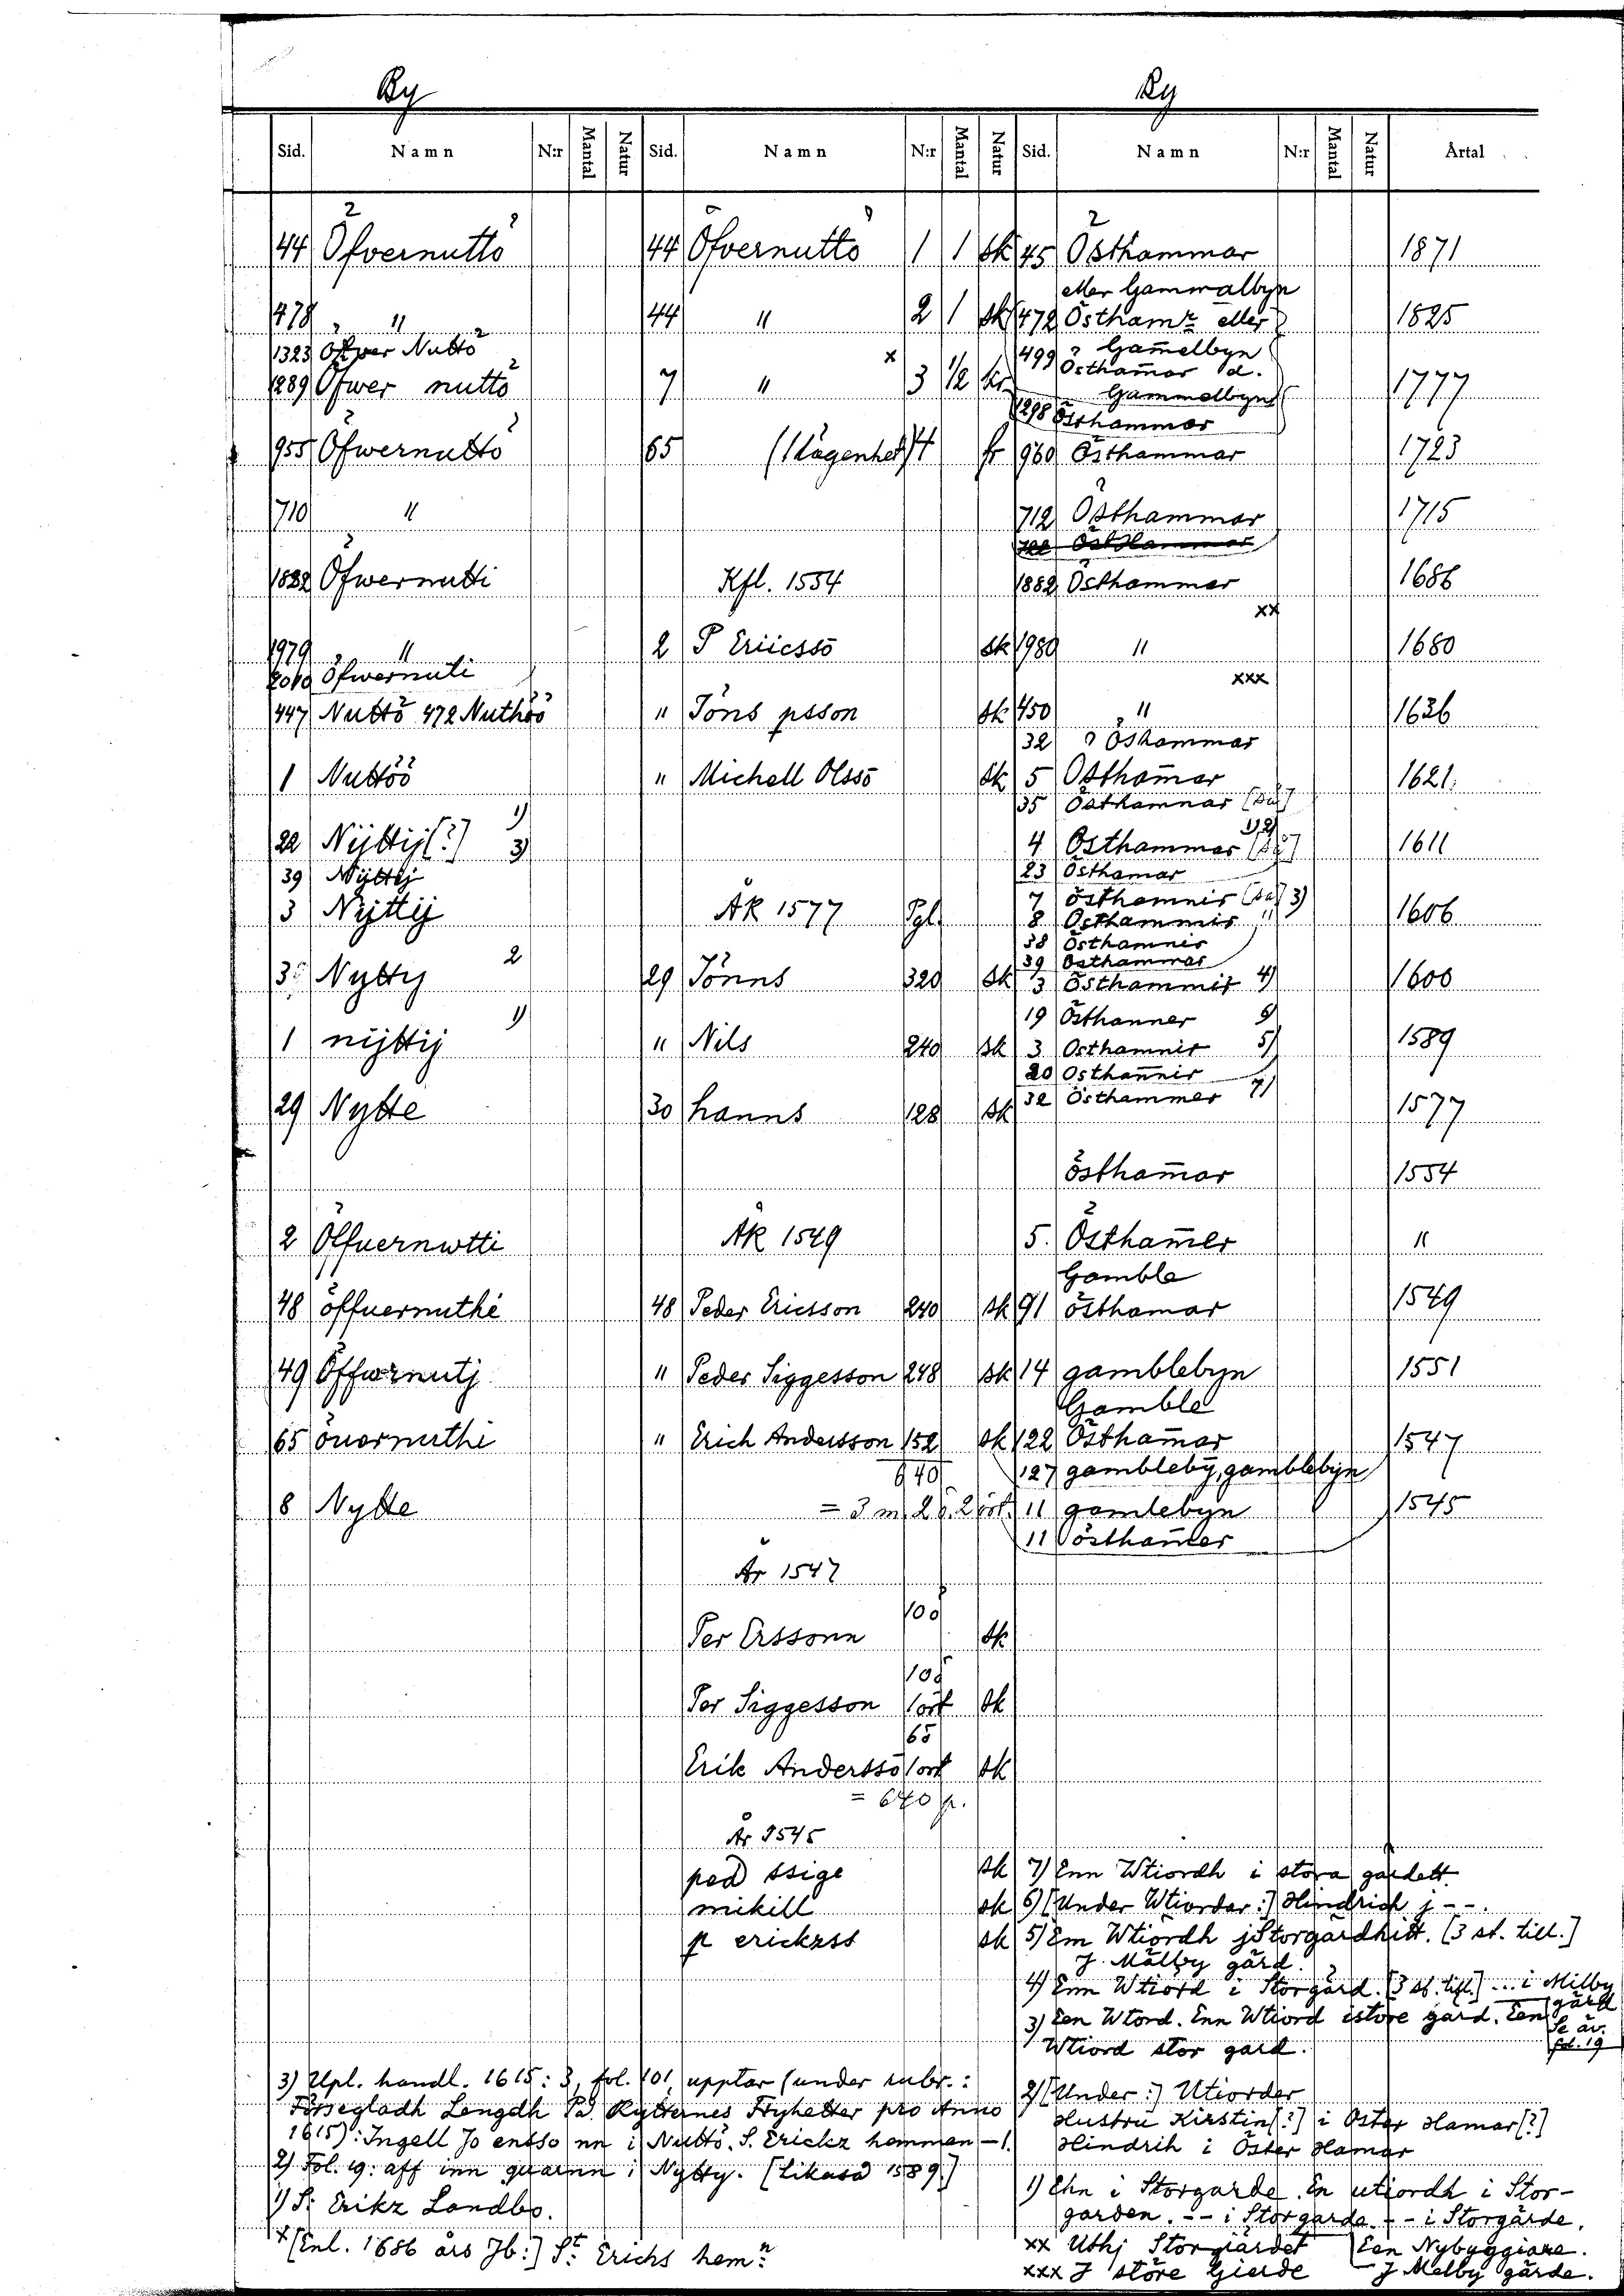 By By
Sid. Namn N:r Mantal Natur Sid. Namn N:r Mantal Natur Sid. Namn N:r Mantal Natur Årtal
44 Öfvernuttö 44 Öfvernuttö 1 1 sk 45 Östhammar 1871
eller Gammalbyn
478 " 44 " 2 1 sk 472 Östhamr eller 1825
1323 Öfwer Nuttö 499 Gam̄elbyn
Östham̄ar d.
1289 Öfwer nuttö 7 " x 3 1/2 kr Gammelbyn 1777
1298 Östhammar
955 Öfwernuttö 65 (lägenhet) 4 fr 960 Östhammar 1723
710 " 712 Östhammar 1715
1882 Öfwernutti Kfl. 1554 1882 Östhammar 1686
xx
1979 " 2 P Eriicssō sk 1980 " 1680
2010 Öfwernuti xxx
447 Nuttö 472 Nuthöö " Jöns psson sk 450 " 1636
32 Öshammar
1 Nuttöö " Michell Olssō sk 5 Östham̄ar 1621
35 Östhamnar [så!]
1) 1,2)
22 Nÿttij [?] 3) 4 Östhammar [så!] 1611
39 Nÿttij 23 Östhamar
7 Östhamnir [så!] 3)
3 Nÿttij ÅR 1577 Pgl. 8 Östhammir " 1606
38 Östhamnir
2 39 Östhammar
35 Nytty 29 Jönns 320 sk 3 Östhammir 4) 1600
1) 19 Östhanner 6)
1 nÿttij " Nils 240 sk 3 Osthamnir 5) 1589
20 Osthan̄nir
29 Nytte 30 hanns 128 sk 32 Östhammer 7) 1577
östham̄ar 1554
2 Öffuernwtti ÅR 1549 5. Östham̄er "
Gamble
48 öffuernuthi 48 Peder Ericsson 240 sk 91 östhamar 1549
49 Öffwrnutj " Peder Siggesson 248 sk 14 gamblebyn 1551
Gamble
65 öuernuthi " Erich Andersson 152 sk 122 Östham̄ar 1547
640 127 gambleby, gamblebyn
8 Nytte = 3 m. 2 ö. 2 ört. 11 gamlebyn 1545
11 östham̄er
År 1547
10 ö
Per Erssonn sk
10 ö
Per Siggesson 1 ört sk
6 ö
Erik Anderssō 1 ört sk
= 640 p.
År 1545
ped ssige sk 7) Enn Wtiordh i stora gardett.
mikill sk 6) [Under Wtiordar:] Hindrich j --.
p erickzss sk 5) Em Wtiordh j Storgårdhitt. [3 st. till.]
J Målby gård.
4) Enn Wtiord i Storgård. [3 st. till.] ... i Milby gård
3) Een Wtord. Enn Wtiord i store gard. Een Se äv. fol. 19
Wtiord stor gard.
3) Upl. handl. 1615: 3, fol. 101, upptar (under rubr.:
Försegladh Lengdh På Rytternes Fryhetter pro Anno
1615): Ingell Jo ensso nn i Nuttö. S. Erickz hemman - 1.
2) Fol. 19: aff inn quarnn i Nytty. [Likaså 1589.]
1) S: Erikz Landbo.
x [Enl. 1686 års Jb:] S:t Erichs hem:n
2) [Under:] Utiorder
Hustru Kirstin [?] i Öster Hamar [?]
Hindrih i Öster Hamar
1) Ehn i Storgarde. En utiordh i Stor-
garden. -- i Storgarda. -- i Storgärde.
xx Uthj Storgiärdet Een Nybyggiare.
xxx J störe Gierde J Melby gärde.